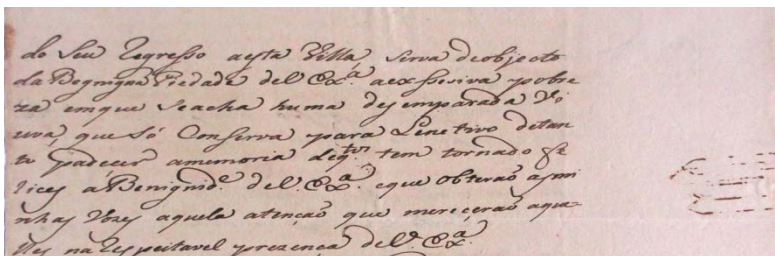 do Seu Regresso aesta Villa, Sirva deobjecto
da Begnigna Piedade de V. Exª. aexsesiva pobre
za emque Seacha huma desemparada Vi
uva, que Só Conserva para Lenetivo detan
to padecer amemoria deqtos. tem tornado fe
lices a Benignide. de V. Exª. eque obterão asmi
nhas Vozes aquela atenção que mereçerão aque
lles na Respeitavel prezença de V. Exª.